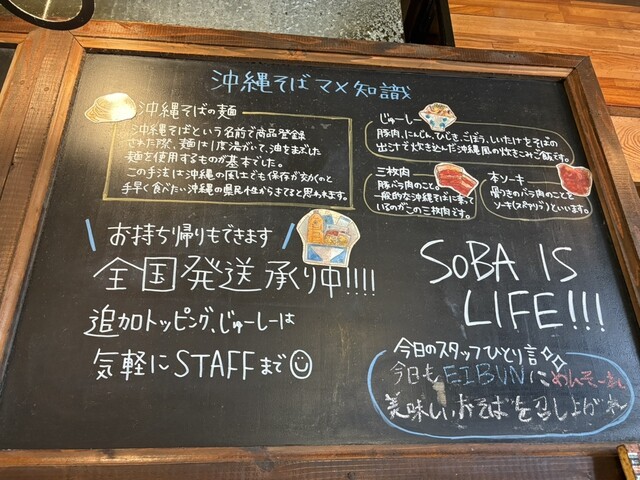 沖縄そばマメ知識
沖縄そばの麺
沖縄そばという名前で商品登録
された際、麺は1度湯がいて、油をまぶした
麺を使用するものが基本でした。
この手法は沖縄の風土でも保存が効くのと
手早く食べたい沖縄の県民性からきてると思われます。
じゅーしー
豚肉、にんじん、ひじき、ごぼう、しいたけをそばの
出汁で炊き込んだ沖縄風の炊きこみご飯です。
三枚肉
豚バラ肉のこと。
一般的な沖縄そばに乗って
いるのがこの三枚肉です。
本ソーキ
骨つきのバラ肉のことを
ソーキ(スペアリブ)といいます。
お持ち帰りもできます
全国発送承り中!!!!
追加トッピング、じゅーしーは
気軽にSTAFFまで
SOBA IS
LIFE!!!
今日のスタッフひとり言
今日もEIBUNにめんそーれ
美味しいおそばを召し上がれ〜